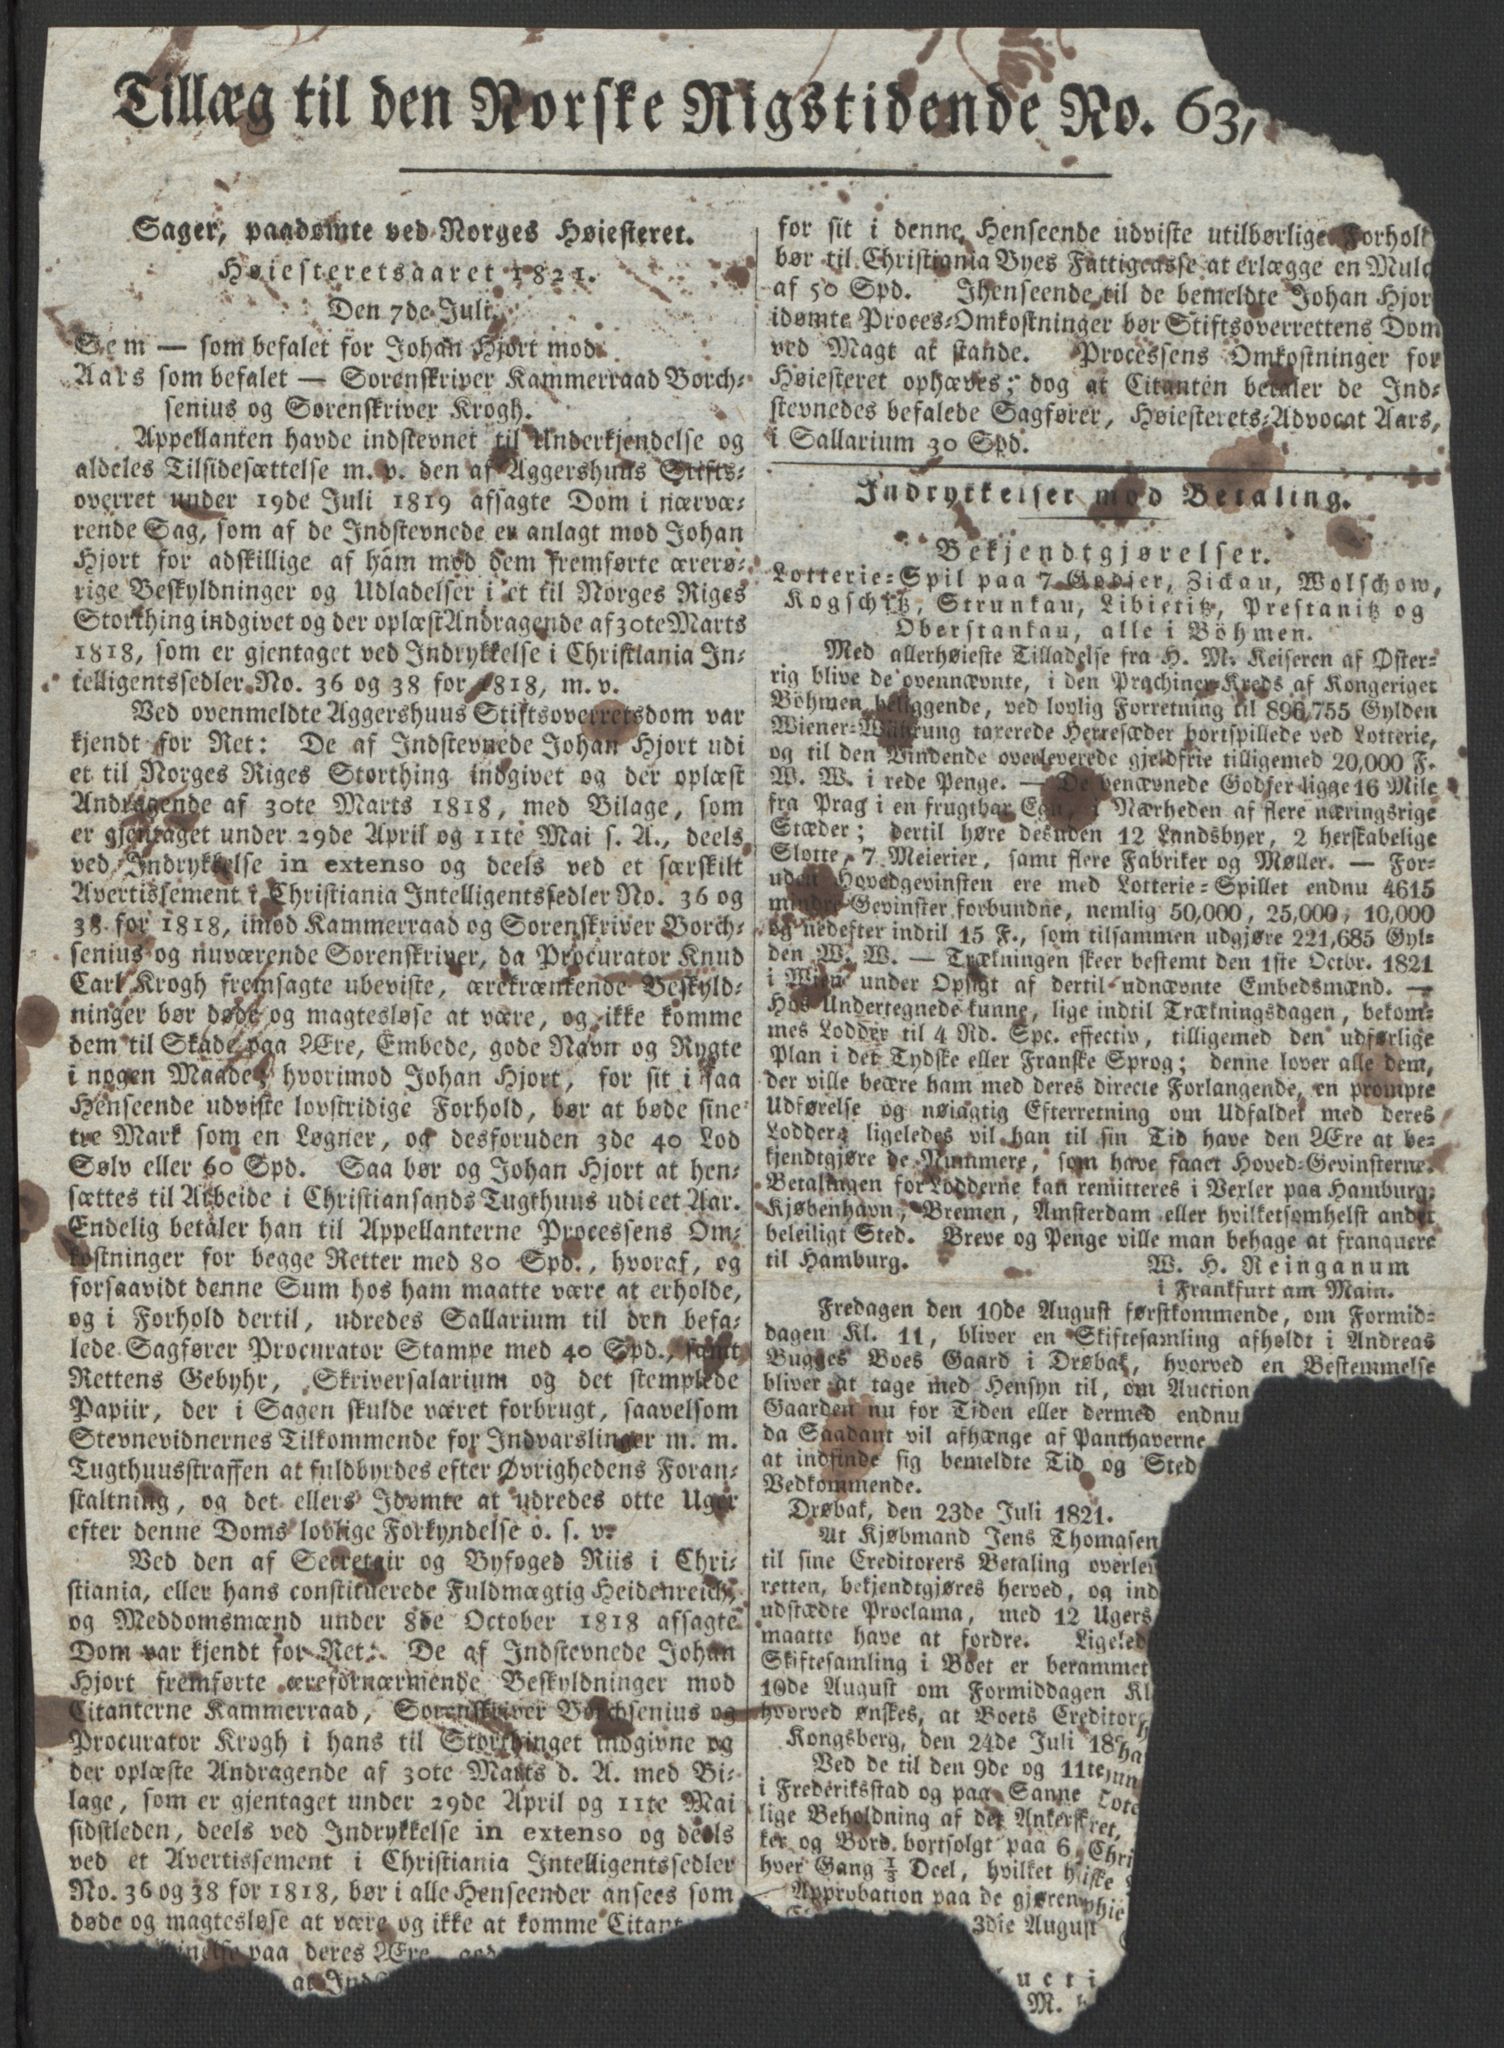 Tillæg til den Norske Rigstidende No. 63,
Sager, paadømte ved Norges Høiesteret.
Høiesteretsaaret 1821.
Den 7de Juli.
Sem — som befalet for Johan Hjort mod
Aars som befalet — Sorenskriver Kammerraad Borch-
senius og Sørenskriver Krogh.
Appellanten havde indstevnet til Underkjendelse og
aldeles Tilsidesættelse m. v. den af Aggershuus Stifts-
overret under 19de Juli 1819 afsagte Dom i nærvæ-
rende Sag, som af de Indstevnede er anlagt mod Johan
Hjort for adskillige af ham mod dem fremførte ærerø-
rige Beskyldninger og Udladelser i et til Norges Riges
Storthing indgivet og der oplæst Andragende af 30te Marts
1818, som er gjentaget ved Indrykkelse i Christiania In-
telligentssedler No. 36 og 38 for 1818, m. v.
Ved ovenmeldte Aggershuus Stiftsoverretsdom var
kjendt for Ret: De af Indstevnede Johan Hjort udi
et til Norges Riges Storthing indgivet og der oplæst
Andragende af 30te Marts 1818, med Bilage, som
er gjentaget under 29de April og 11te Mai s. A., deels
ved Indrykkelse in extenso og deels ved et særskilt
Avertissement i Christiania Intelligentssedler No. 36 og
38 for 1818, imod Kammerraad og Sorenskriver Borch-
senius og nuværende Sorenskriver, da Procurator Knud
Carl Krogh fremsagte ubeviste, ærekrænkende Beskyld-
ninger bør døde og magtesløse at være, og ikke komme
dem til Skade paa Ære, Embede, gode Navn og Rygte
i nogen Maade; hvorimod Johan Hjort, for sit i saa
Henseende udviste lovstridige Forhold, bør at bøde sine
tre Mark som en Løgner, og desforuden 3de 40 Lod
Sølv eller 60 Spd. Saa bør og Johan Hjort at hen-
sættes til Arbeide i Christiansands Tugthuus udi eet Aar.
Endelig betaler han til Appellanterne Processens Om-
kostninger for begge Retter med 80 Spd., hvoraf, og
forsaavidt denne Sum hos ham maatte være at erholde,
og i Forhold dertil, udredes Sallarium til den befa-
lede Sagfører Procurator Stampe med 40 Spd., samt
Rettens Gebyhr, Skriversalarium og det stemplede
Papiir, der i Sagen skulde været forbrugt, saavelsom
Stevnevidnernes Tilkommende for Indvarslinger m. m.
Tugthuusstraffen at fuldbyrdes efter Øvrighedens Foran-
staltning, og det ellers Idømte at udredes otte Uger
efter denne Doms lovlige Forkyndelse o. s. v.
Ved den af Secretair og Byfoged Riis i Chri-
stiania, eller hans constituerede Fuldmægtig Heidenreich,
og Meddomsmænd under 8de October 1818 afsagte
Dom var kjendt for Ret: De af Indstevnede Johan
Hjort fremførte ærefornærmende Beskyldninger mod
Citanterne Kammerraad, Sorenskriver Borchsenius og
Procurator Krogh i hans til Storthinget indgivne og
der oplæste Andragende af 30te Marts d. A. med Bi-
lage, som er gjentaget under 29de April og 11te Mai
sidstleden, deels ved Indrykkelse in extenso og deels
ved et Avertissement i Christiania Intelligentssedler
No. 36 og 38 for 1818, bør i alle Henseender ansees som
døde og magtesløse at være og ikke at komme Citant
paa deres Ære
at Ind
for sit i denne Henseende udviste utilbørlige Forhold
bør til Christiania Byes Fattigcasse at erlægge en Mulc
af 50 Spd. Ihenseende til de bemeldte Johan Hjor
idømte Proces-Omkostninger bør Stiftsoverrettens Dom
ved Magt at stande. Processens Omkostninger for
Høiesteret ophæves; dog at Citanten betaler de Ind-
stevnedes befalede Sagfører, Høiesterets-Advocat Aars,
i Sallarium 30 Spd.
Indrykkelser mod Betaling.
Bekjendtgjørelser.
Lotterie-Spil paa 7 Godser, Zickau, Wolschow,
Kogschitz, Strunkau, Libietitz, Prestanitz og
Oberstankau, alle i Böhmen.
Med allerhøieste Tilladelse fra H. M. Keiseren af Øster-
rig blive de ovennævnte, i den Prachiner-Kreds af Kongeriget
Böhmen beliggende, ved lovlig Forretning til 896,755 Gylden
Wiener-Währung taxerede Herresæder bortspillede ved Lotterie,
og til den Vindende overleverede gjeldfrie tilligemed 20,000 F.
W. W. i rede Penge. — De benævnede Godser ligge 16 Mile
fra Prag i en frugtbar Egn, i Nærheden af flere næringsrige
Stæder; dertil høre desuden 12 Landsbyer, 2 herskabelige
Slotte, 7 Meierier, samt flere Fabriker og Møller. — For-
uden Hovedgevinsten ere med Lotterie-Spillet endnu 4615
mindre Gevinster forbundne, nemlig 50,000, 25,000, 10,000
og nedefter indtil 15 F., som tilsammen udgjøre 221,685 Gyl-
den W. W. — Trækningen skeer bestemt den 1ste Octbr. 1821
i Wien under Opsigt af dertil udnævnte Embedsmænd. —
Hos Undertegnede kunne, lige indtil Trækningsdagen, bekom-
mes Lodder til 4 Rd. Spc. effectiv, tilligemed den udførlige
Plan i det Tydske eller Franske Sprog; denne lover alle dem,
der ville beære ham med deres directe Forlangende, en prompte
Udførelse og nøiagtig Efterretning om Udfaldet med deres
Lodder; ligeledes vil han til sin Tid have den Ære at be-
kjendtgjøre de Nummere, som have faaet Hoved-Gevinsterne.
Betalingen for Lodderne kan remitteres i Vexler paa Hamburg,
Kjøbenhavn, Bremen, Amsterdam eller hvilketsomhelst andet
beleiligt Sted. Breve og Penge ville man behage at franquere
til Hamburg. W. H. Reinganum
i Frankfurt am Main.
Fredagen den 10de August førstkommende, om Formid-
dagen Kl. 11, bliver en Skiftesamling afholdt i Andreas
Bugges Boes Gaard i Drøbak, hvorved en Bestemmelse
bliver at tage med Hensyn til, om Auction
Gaarden nu for Tiden eller dermed endnu
da Saadant vil afhænge af Panthaverne
at indfinde sig bemeldte Tid og Sted
Vedkommende.
Drøbak, den 23de Juli 1821.
At Kjøbmand Jens Thomasen
til sine Creditorers Betaling overlev
retten, bekjendtgjøres herved, og ind
udstædte Proclama, med 12 Ugers
maatte have at fordre. Ligeled
Skiftesamling i Boet er berammet
10de August om Formiddagen Kl
hvorved ønskes, at Boets Creditor
Kongsberg, den 24de Juli 18
Ved de til den 9de og 11te
i Frederiksstad og paa Sanne
lige Beholdning af det Ankerske
ker og Bord bortsolgt paa 6
hver Gang 1/3 Deel, hvilket h
Approbation paa de gjøren
3die August
ucti
M.